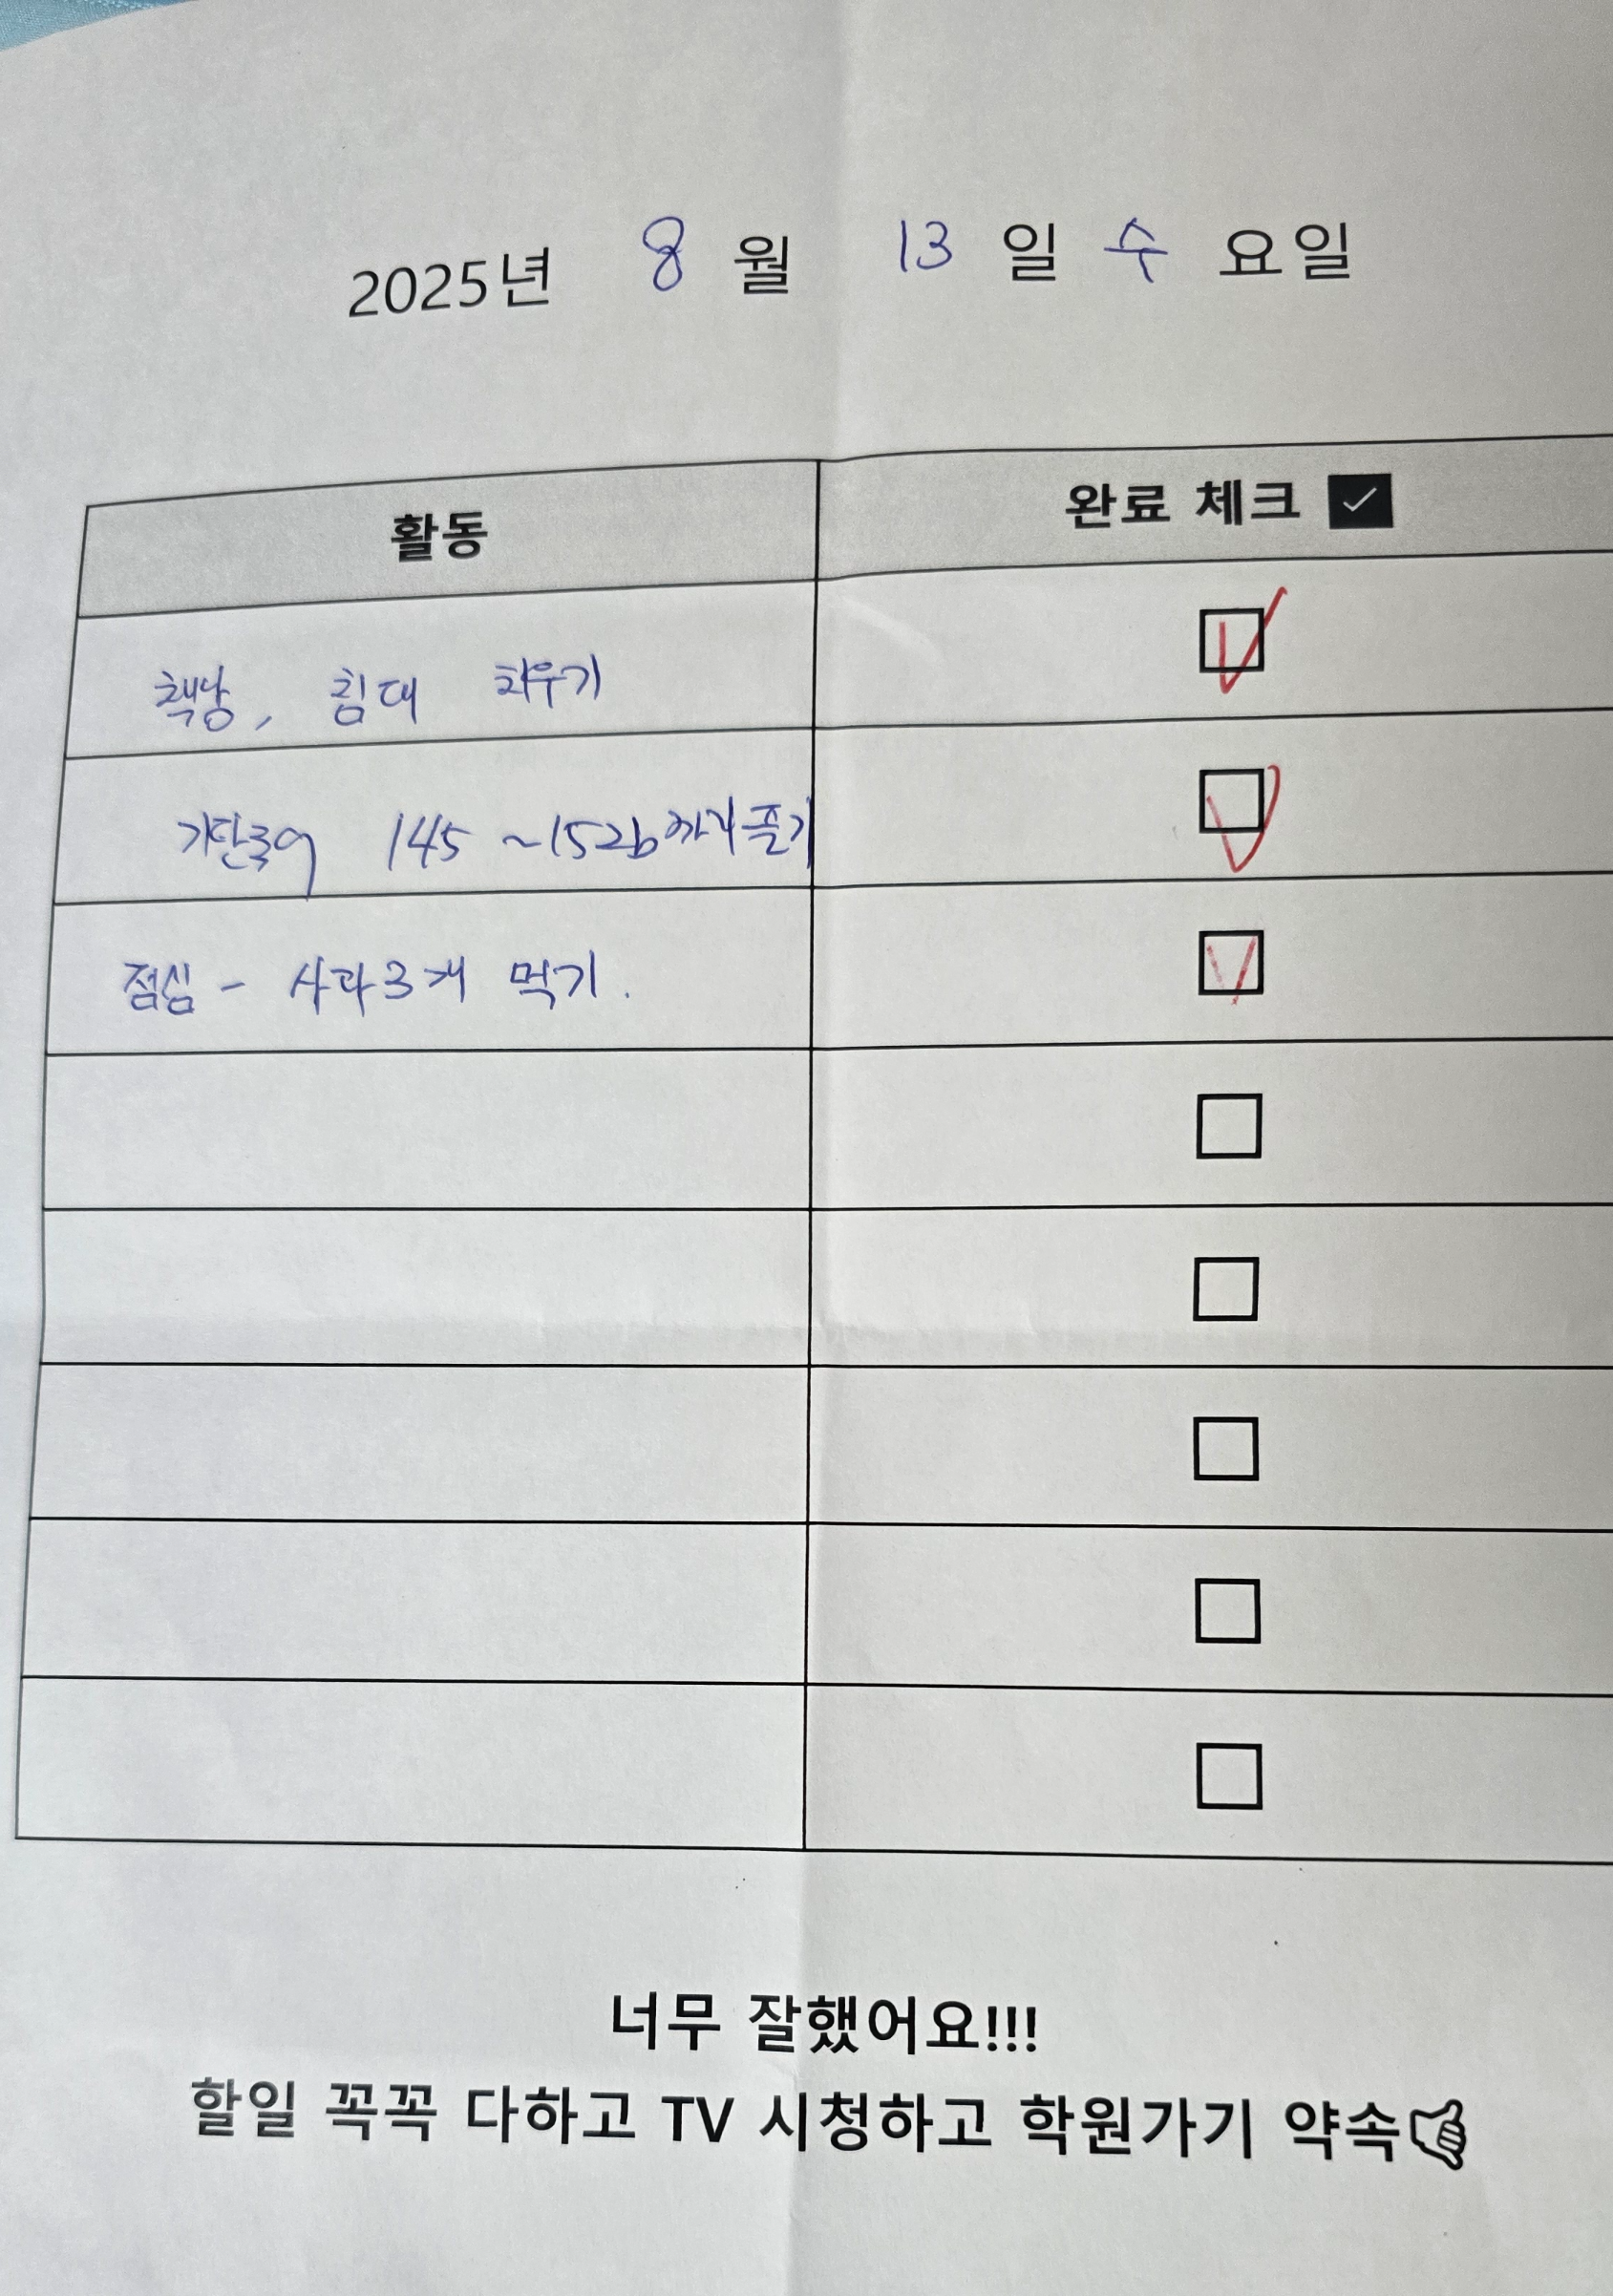 2025년 8 월 13 일 수 요일
활동 완료 체크
책상, 침대 치우기
기탄국어 145 ~152b까지 풀기
점심 - 사과 3개 먹기.
너무 잘했어요!!!
할일 꼭꼭 다하고 TV 시청하고 학원가기 약속